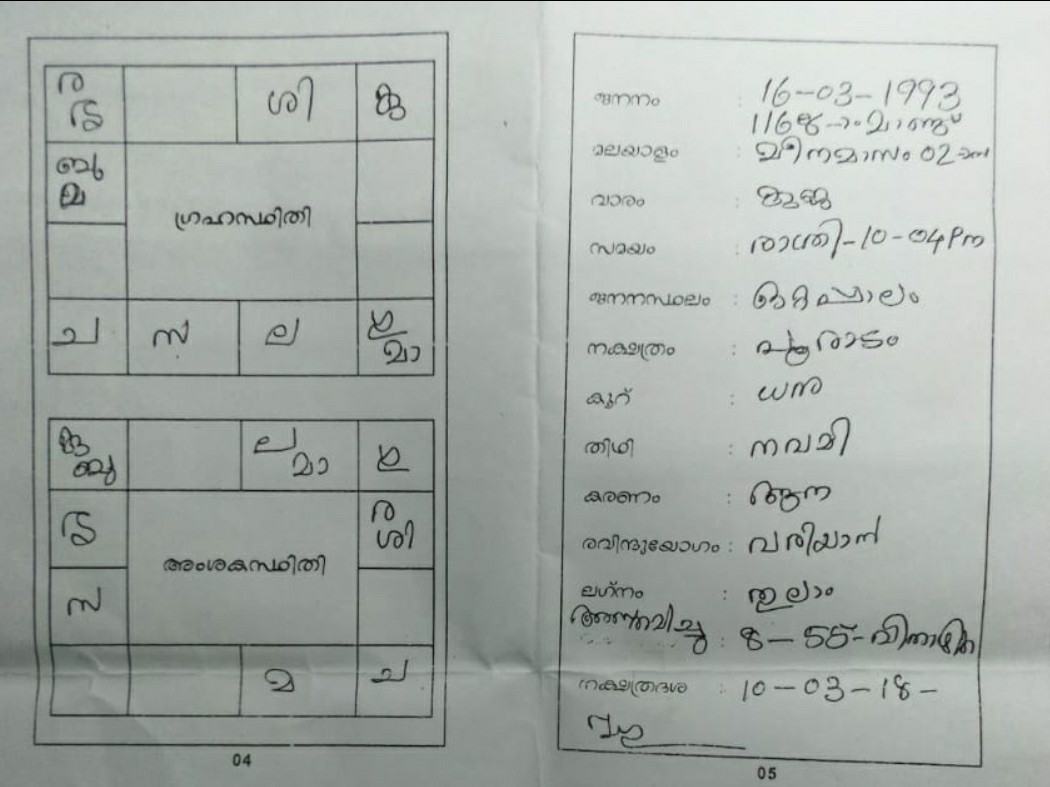 ര ശി കു
ശു
ബു
മ
ഗ്രഹസ്ഥിതി
ച സ ല ഗു
മാ
കു ല ഗു
ബു മാ
ശു ര
ശി
അംശകസ്ഥിതി
സ
മ ച
04
ജനനം : 16-03-1993
1168-ാംമാണ്ട്
മലയാളം : മീനമാസം 02-ന്
വാരം : കുജ
സമയം : രാത്രി-10-04Pm
ജനനസ്ഥലം : ഒറ്റപ്പാലം
നക്ഷത്രം : പൂരാടം
കൂറ് : ധനു
തിഥി : നവമി
കരണം : ആന
രവീന്ദുയോഗം : വരിയാൻ
ലഗ്നം : തുലാം
: 8-55-വിനാഴിക
നക്ഷത്രദശ : 10-03-18-
05